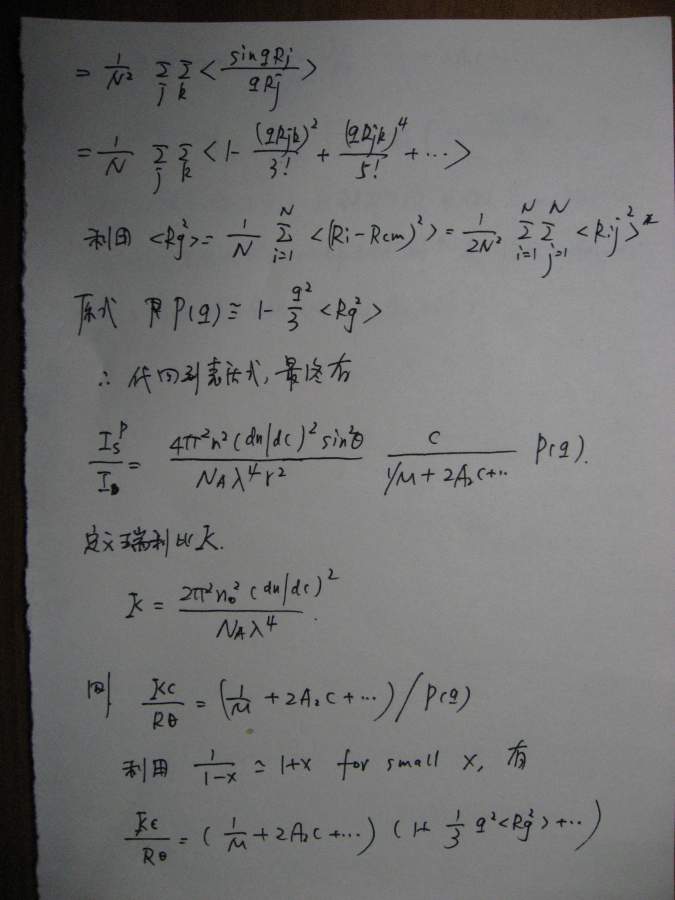 = 1/N² Σj Σk < sin qRj / qRj >
= 1/N Σj Σk < 1 - (qRjk)²/3! + (qRjk)⁴/5! + ··· >
利用 <Rg²> = 1/N Σ_{i=1}^{N} <(Ri - Rcm)²> = 1/2N² Σ_{i=1}^{N} Σ_{j=1}^{N} <Rij²>
原式 P(q) ≅ 1 - q²/3 <Rg²>
∴ 代回到表达式, 最终有
Is^P / I0 = 4π²n²(dn/dc)² sin²θ / NAλ⁴r²  c / (1/M + 2A2c+··)  P(q).
定义瑞利比 K.
K = 2π²n0²(dn/dc)² / NAλ⁴.
则 Kc/Rθ = (1/M + 2A2c + ···) / P(q)
利用 1/(1-x) ≃ 1+x for small x, 有
Kc/Rθ = (1/M + 2A2c + ···) (1+ 1/3 q²<Rg²> + ··)